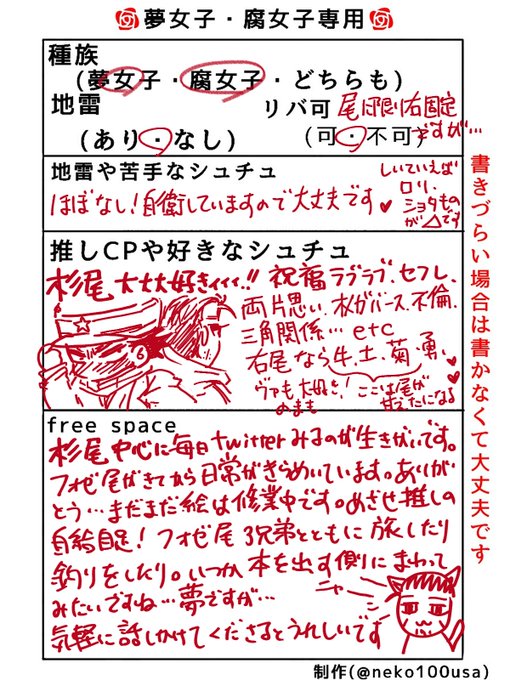 夢女子・腐女子専用
種族
(夢女子・腐女子・どちらも)
地雷
(あり・なし)
リバ可 尾に限り右固定
(可・不可) ですが…
地雷や苦手なシュチュ
ほぼなし！自衛していますので大丈夫です
しいていえば
ロリ、
ショタもの
が△です
書きづらい場合は書かなくて大丈夫です
推しCPや好きなシュチュ
杉尾 大大大好きィィィ..!!
祝福 ラブラブ、セフレ、
両片思い、オメガバース、不倫、
三角関係… etc
右尾なら牛、土、菊、勇、
ヴァも大好き！
のまも
ここは尾が
甘えたになる
free space
杉尾中心に毎日twitterみるのが生きがいです。
フォゼ尾がきてから日常がきらめいています。ありが
とう…まだまだ絵は修業中です。めざせ推しの
自給自足！フォゼ尾3兄弟とともに旅したり
釣りをしたり。いつか本を出す側にまわって
みたいですね…夢ですが…
ニャー
気軽に話しかけてくださるとうれしいです
制作(@neko100usa)